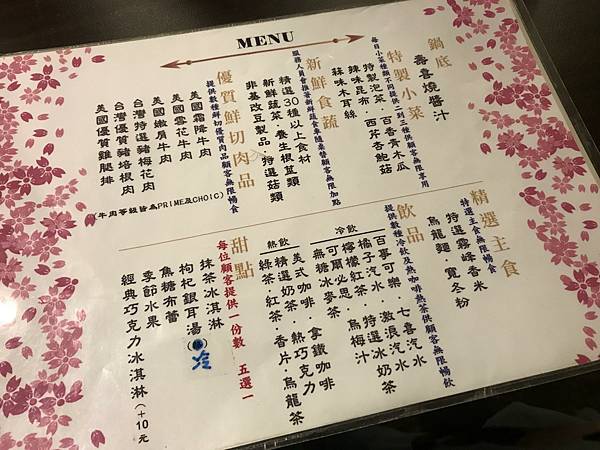 MENU
鍋底
壽喜燒醬汁
特製小菜
每日小菜種類不同提供二到三種供顧客無限享用
特製泡菜．百香青木瓜
辣味昆布．西芹杏鮑菇
蒜味木耳絲
新鮮食蔬
服務人員會推著新鮮蔬食車隨桌替顧客無限加點
精選30種以上食材
新鮮蔬菜．養生根莖類
非基改豆製品．特選菇類
優質鮮切肉品
提供數種鮮切優質肉品顧客無限暢食
美國霜降牛肉
美國雪花牛肉
美國嫩肩牛肉
台灣特選梅花肉
台灣優質豬培根肉
美國優質雞腿排
(牛肉等級皆為PRIME及CHOIC)
精選主食
特選主食無限暢食
特選霧峰香米
烏龍麵．寬冬粉
飲品
提供數種冷飲及熱咖啡熱茶供顧客無限暢飲
冷飲
百事可樂．七喜汽水
橘子汽水．激浪汽水
檸檬紅茶．特選冰奶茶
可爾必思．烏梅汁
無糖冰麥茶
熱飲
美式咖啡．拿鐵咖啡
精選奶茶．熱巧克力
綠茶．紅茶．香片．烏龍茶
甜點
每位顧客提供一份數 五選一
抹茶冰淇淋
枸杞銀耳湯(冷
焦糖布蕾
季節水果
經典巧克力冰淇淋(+10元